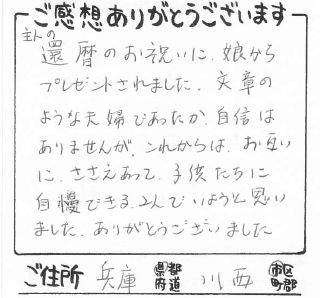 ご感想ありがとうございます
主人の
還暦のお祝いに、娘から
プレゼントされました。文章の
ような夫婦であったか、自信は
ありませんが、これからは、お互い
に、ささえあって、子供たちに
自慢できる、2人でいようと思い
ました。ありがとうございました
ご住所 兵庫 都道府県 川西 市区町郡